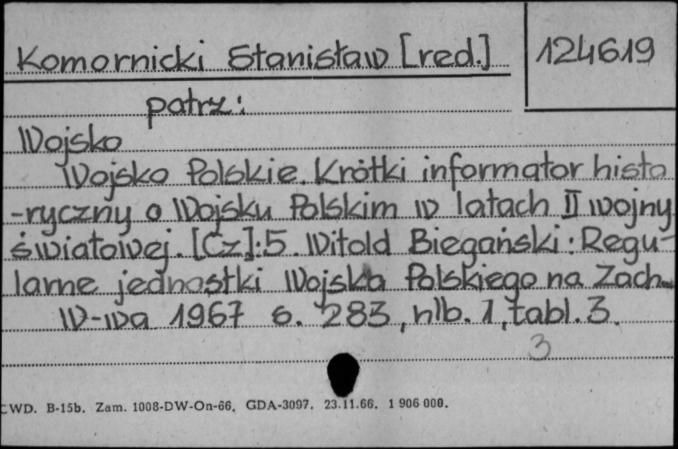 Komornicki Stanisław [red.]
124619
patrz:
Wojsko
Wojsko Polskie. Krótki informator histo
-ryczny o Wojsku Polskim w latach II wojny
światowej. [Cz]:5. Witold Biegański: Regu-
larne jednostki Wojska Polskiego na Zach.
W-wa 1967 s. 283, nlb. 1, tabl. 3.
3
CWD. B-15b. Zam. 1008-DW-On-66. GDA-3097. 23.11.66. 1 906 000.